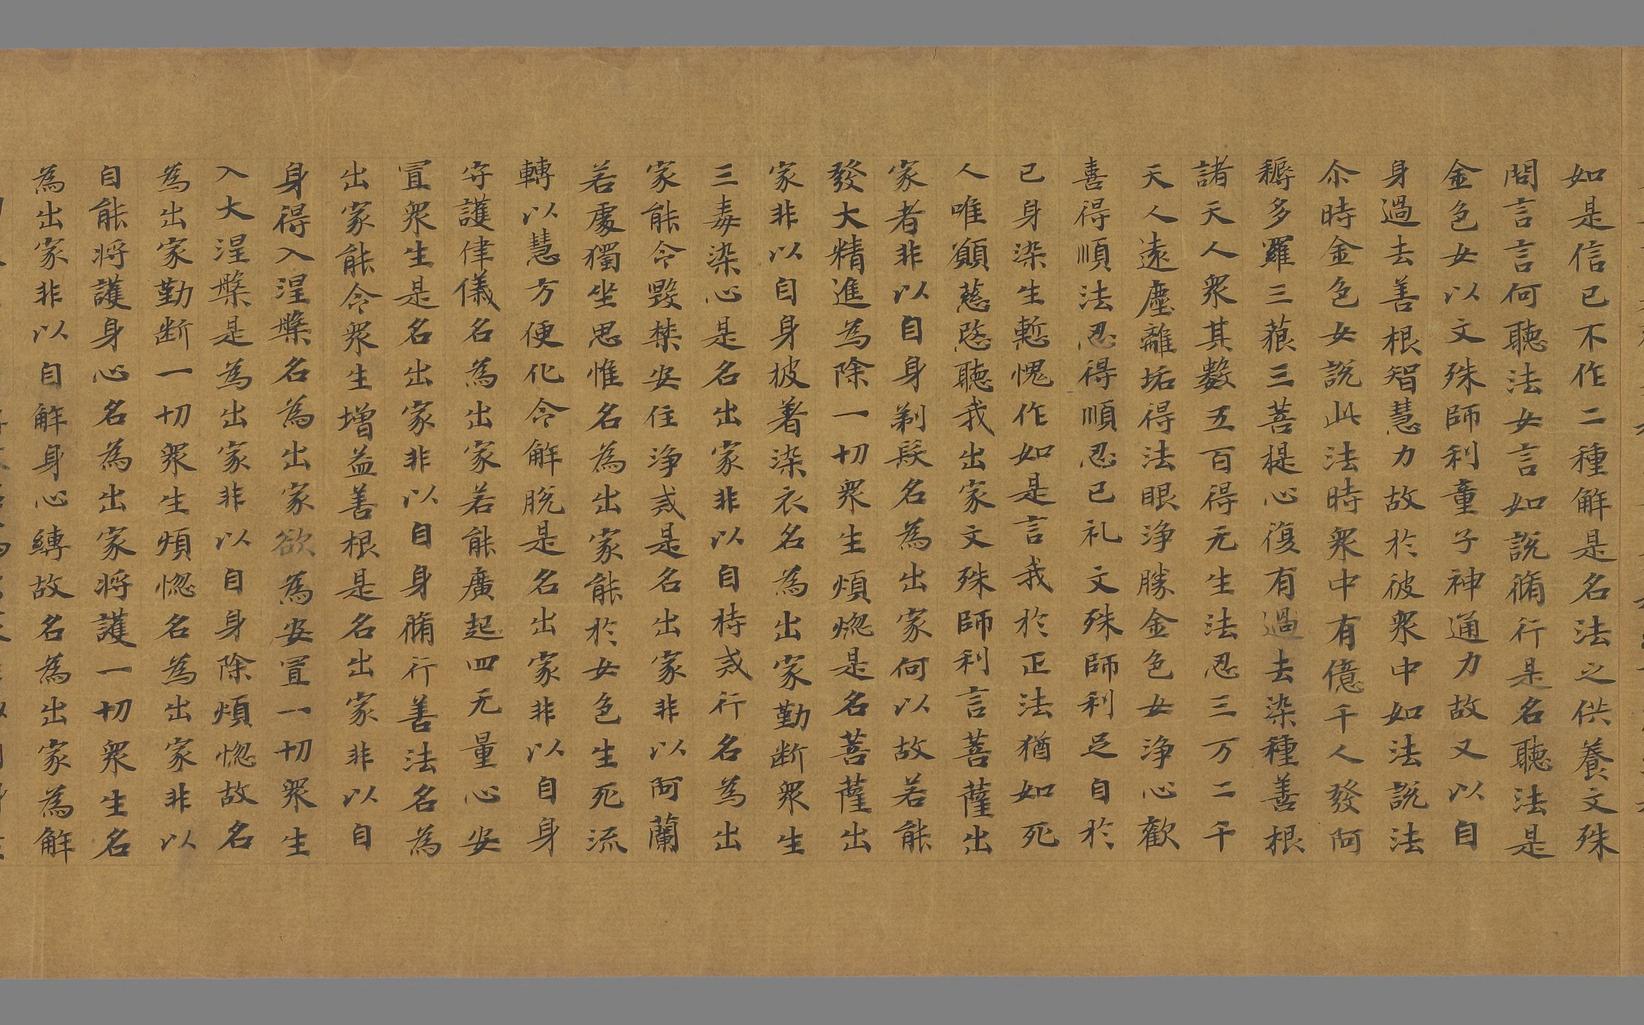 如是信已不作二種解是名法之供養文殊
問言言何聽法女言如說脩行是名聽法是
金色女以文殊師利童子神通力故又以自
身過去善根智慧力故於彼衆中如法說法
尒時金色女說此法時衆中有億千人發阿
耨多羅三藐三菩提心復有過去染種善根
諸天人衆其數五百得无生法忍三万二千
天人遠塵離垢得法眼淨勝金色女淨心歡
喜得順法忍得順忍已礼文殊師利足自於
已身染生慙愧作如是言我於正法猶如死
人唯願慈愍聽我出家文殊師利言菩薩出
家者非以自身剃髮名為出家何以故若能
發大精進為除一切衆生煩惚是名菩薩出
家非以自身披著染衣名為出家勤断衆生
三毒染心是名出家非以自持戒行名為出
家能令毀禁安住淨戒是名出家非以阿蘭
若處獨坐思惟名為出家能於女色生死流
轉以慧方便化令解脫是名出家非以自身
守護律儀名為出家若能廣起四无量心安
置衆生是名出家非以自身脩行善法名為
出家能令衆生增益善根是名出家非以自
身得入涅槃名為出家欲為安置一切衆生
入大涅槃是為出家非以自身除煩惚故名
為出家勤断一切衆生煩惚名為出家非以
自能将護身心名為出家将護一切衆生名
為出家非以自解身心縛故名為出家為解